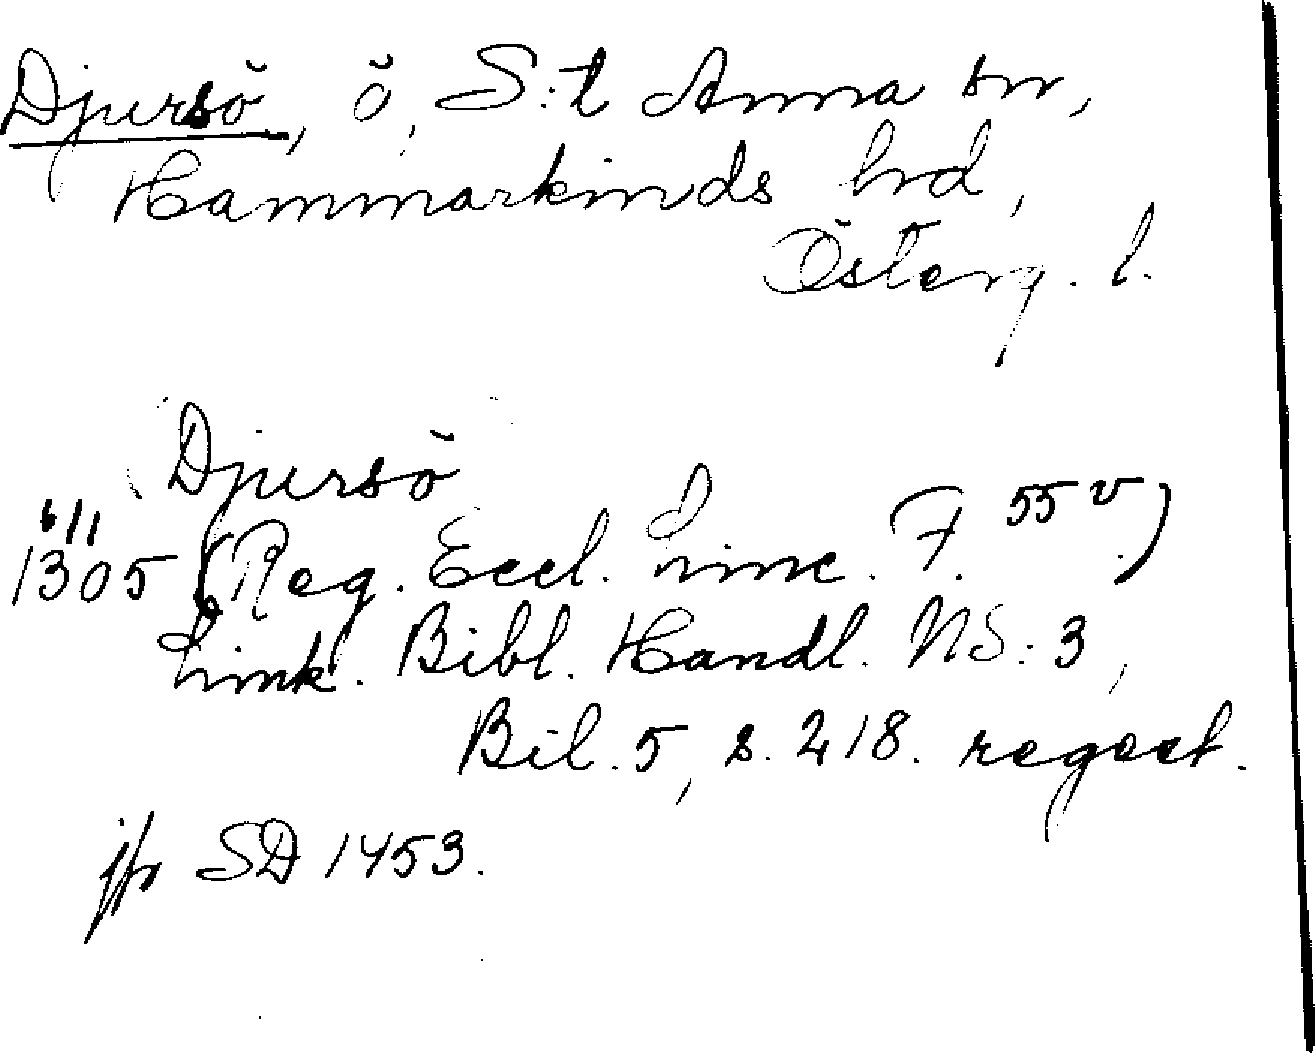 Djursö, ö, S:t Anna sn,
Hammarkinds hd,
Österg. l.
Djursö
6/11
1305 (Reg. Eccl. Linc. F. 55 v)
Link. Bibl. Handl. NS: 3,
Bil. 5, s. 218. regest.
jfr SD 1453.